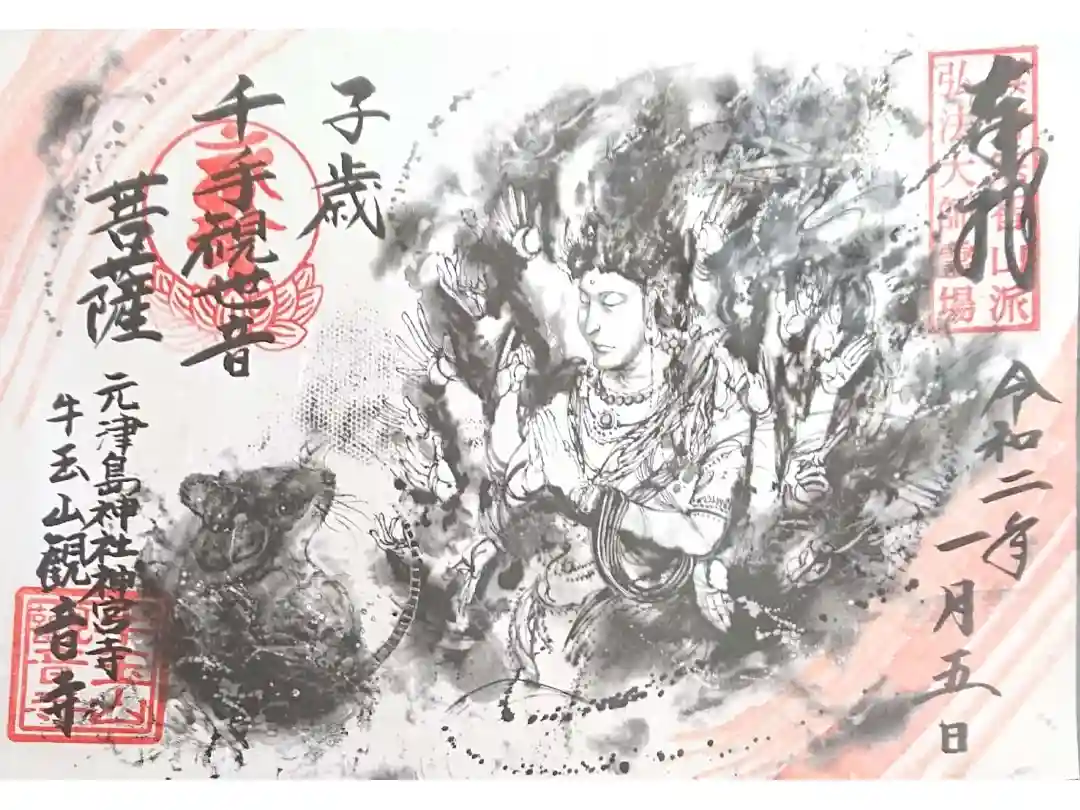 奉拝
山派
弘法大師靈場
令和二年
一月五日
子歳
千手観世音
菩薩
元津島神社神宮寺
牛玉山観音寺